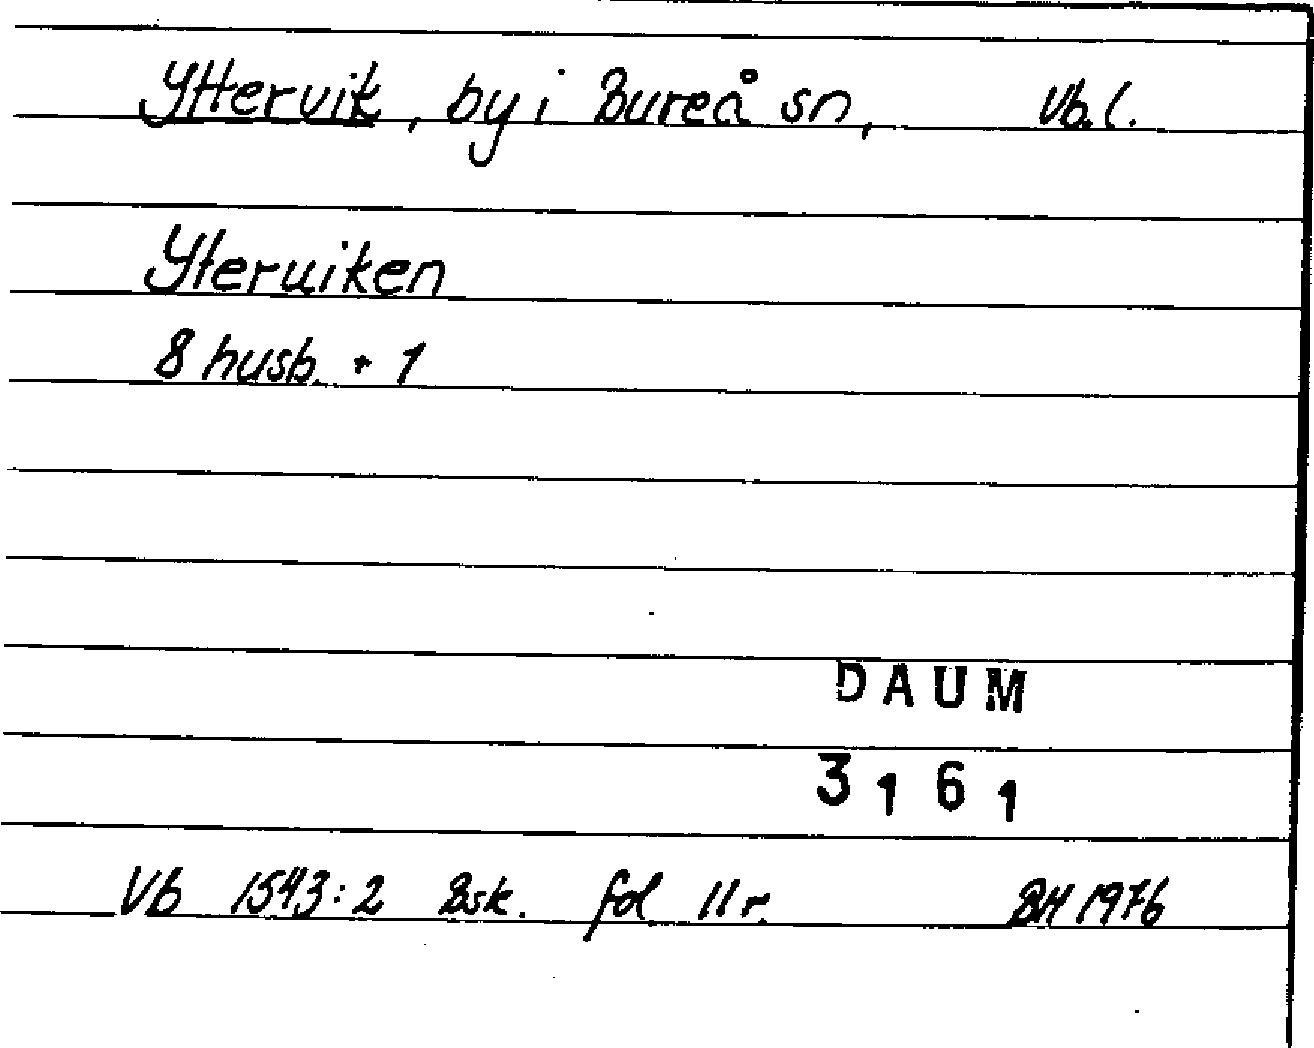 Yttervik, by i Bureå sn, Vb. l.
Yteruiken
8 husb. + 1
DAUM
3161
Vb 1543:2 Bsk. fol 11 r. BH 1976